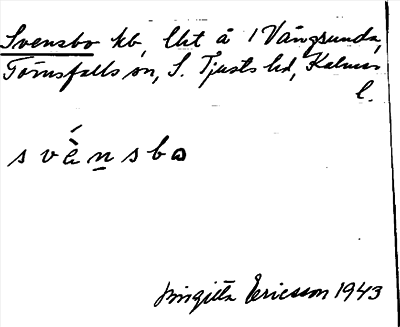 Svensbo kb, lht å 1 Vångsunda,
Törnsfalls sn, S. Tjusts hd, Kalmar
l.
svènsbo
Birgitta Ericsson 1943